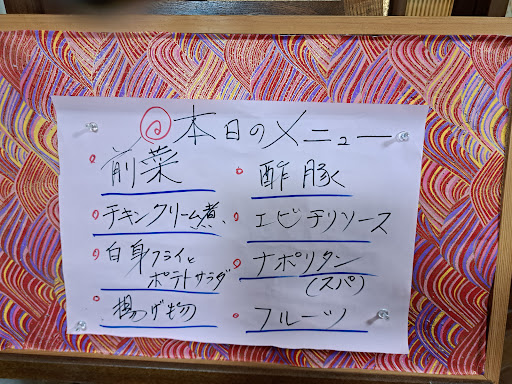 本日のメニュー
前菜
チキンクリーム煮、
白身フライと
ポテトサラダ
揚げ物
酢豚
エビチリソース
ナポリタン
(スパ)
フルーツ